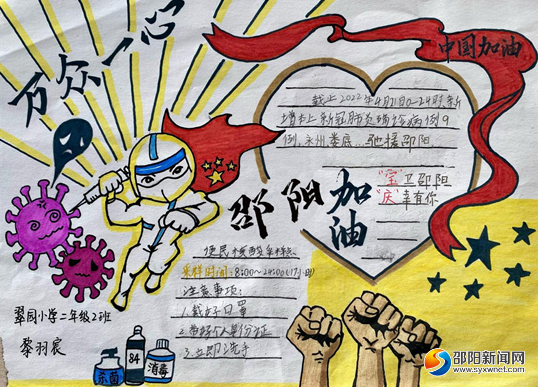 万众一心
中国加油
截止2022年4月7日0-24时,新
增本土新冠肺炎确诊病例9
例,永州娄底 驰援邵阳
"宝"卫邵阳
"庆"幸有你
邵阳加油
便民核酸采样点
采样时间:8:00~24:00
注意事项:
1.戴好口罩
2.带好个人身份证
3.立即洗手
翠园小学二年级2班
黎羽宸
杀菌
84
消毒
邵阳新闻网
www.syxwnet.com